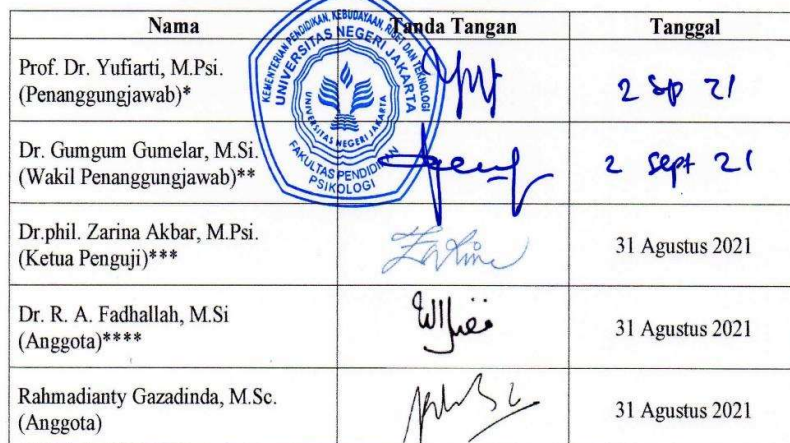 Nama Tanda Tangan Tanggal
Prof. Dr. Yufiarti, M.Psi.
(Penanggungjawab)*
2 Sp 21
Dr. Gumgum Gumelar, M.Si.
(Wakil Penanggungjawab)**
2 Sept 21
Dr.phil. Zarina Akbar, M.Psi.
(Ketua Penguji)***
31 Agustus 2021
Dr. R. A. Fadhallah, M.Si
(Anggota)****
31 Agustus 2021
Rahmadianty Gazadinda, M.Sc.
(Anggota)
31 Agustus 2021
KEMENTERIAN PENDIDIKAN, KEBUDAYAAN, RISET DAN TEKNOLOGI
UNIVERSITAS NEGERI JAKARTA
UNIVERSITAS NEGERI JAKARTA
FAKULTAS PENDIDIKAN
PSIKOLOGI